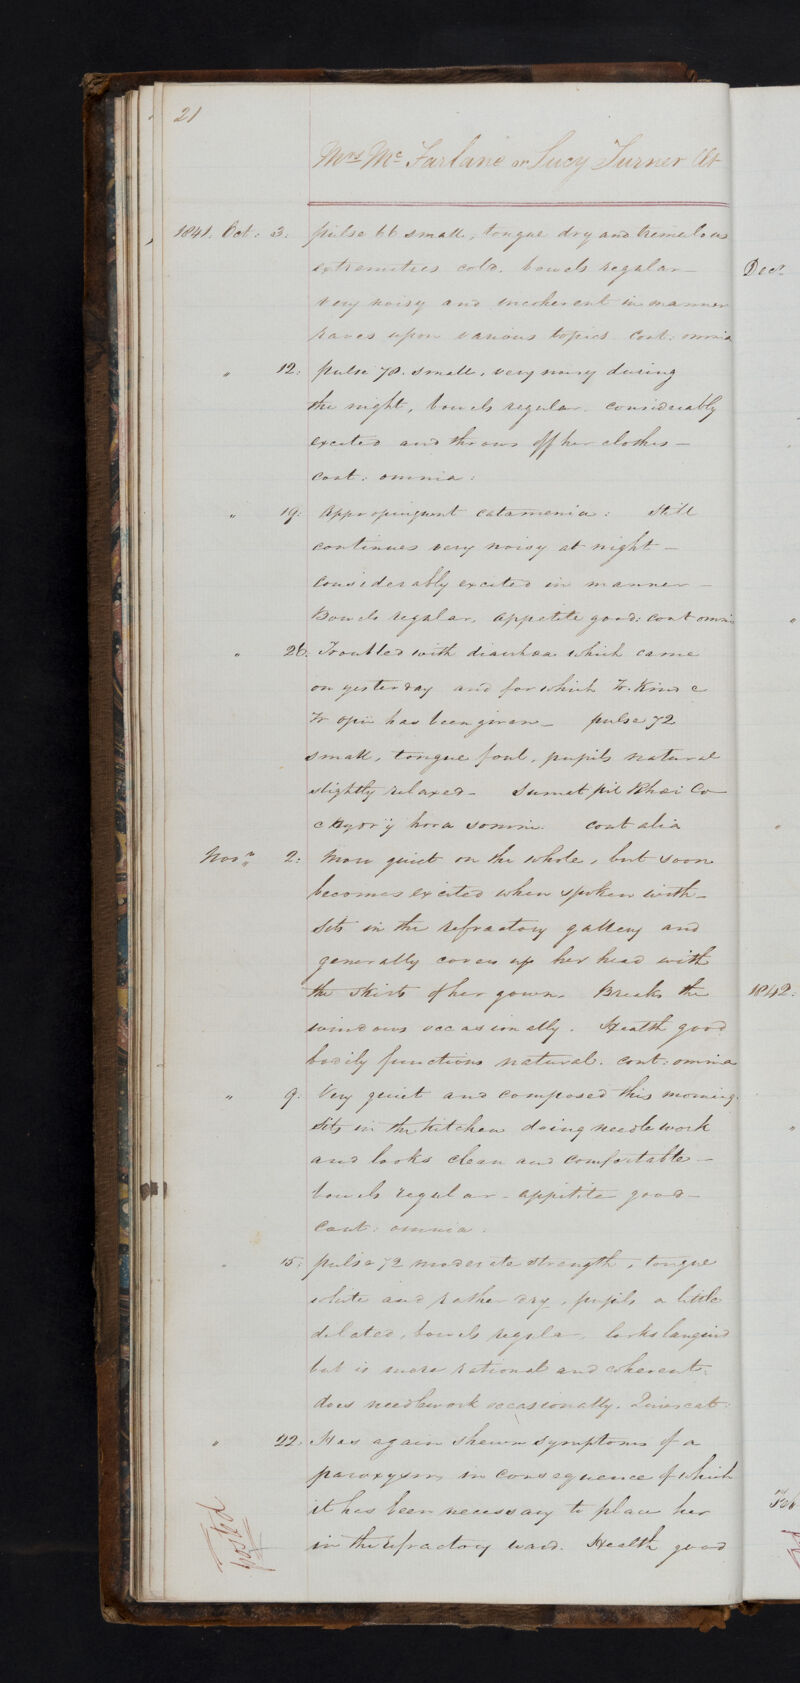 21
Mrs McFarlane or Lucy Turner Æt
1841. Oct: 3. pulse 66 small, tongue dry and tremulous
extremities cold. bowels regular –
very noisy and incoherent in manner
raves upon various topics. Cont: omnia
" 12: pulse 78. small, very noisy during
the night, bowels regular. considerably
excited and throws off her clothes –
cont: omnia:
" 19: Appropinquent catamenia: Still
continues very noisy at night –
considerably excited in manner –
Bowels regular, appetite good: cont omnia
" 26. Troubled with diarrhœa which came
on yesterday and for which Tr. Kino c
Tr opii has been given – pulse 72
small, tongue foul, pupils natural
slightly relaxed – Sumat pil Rhei Co
hora somni. cont alia
Novr 2: More quiet on the whole, but soon
becomes excited when spoken with –
sits in the refractory gallery and
generally covers up her head with
the skirts of her gown. Breaks the
windows occasionally. Health good
bodily functions natural. cont: omnia
" 9: Very quiet and composed this morning.
Sits in the kitchen doing needlework
and looks clean and comfortable –
bowels regular – appetite good –
cont: omnia.
" 15: pulse 72 moderate strength, tongue
white and rather dry, pupils a little
dilated, bowels regular, looks languid
but is more rational and coherent.
does needlework occasionally.
" 22: Has again shewn symptoms of a
paroxysm, in consequence of which
it has been necessary to place her
in the refractory ward. Health good
posted
Decr
1842:
Feb